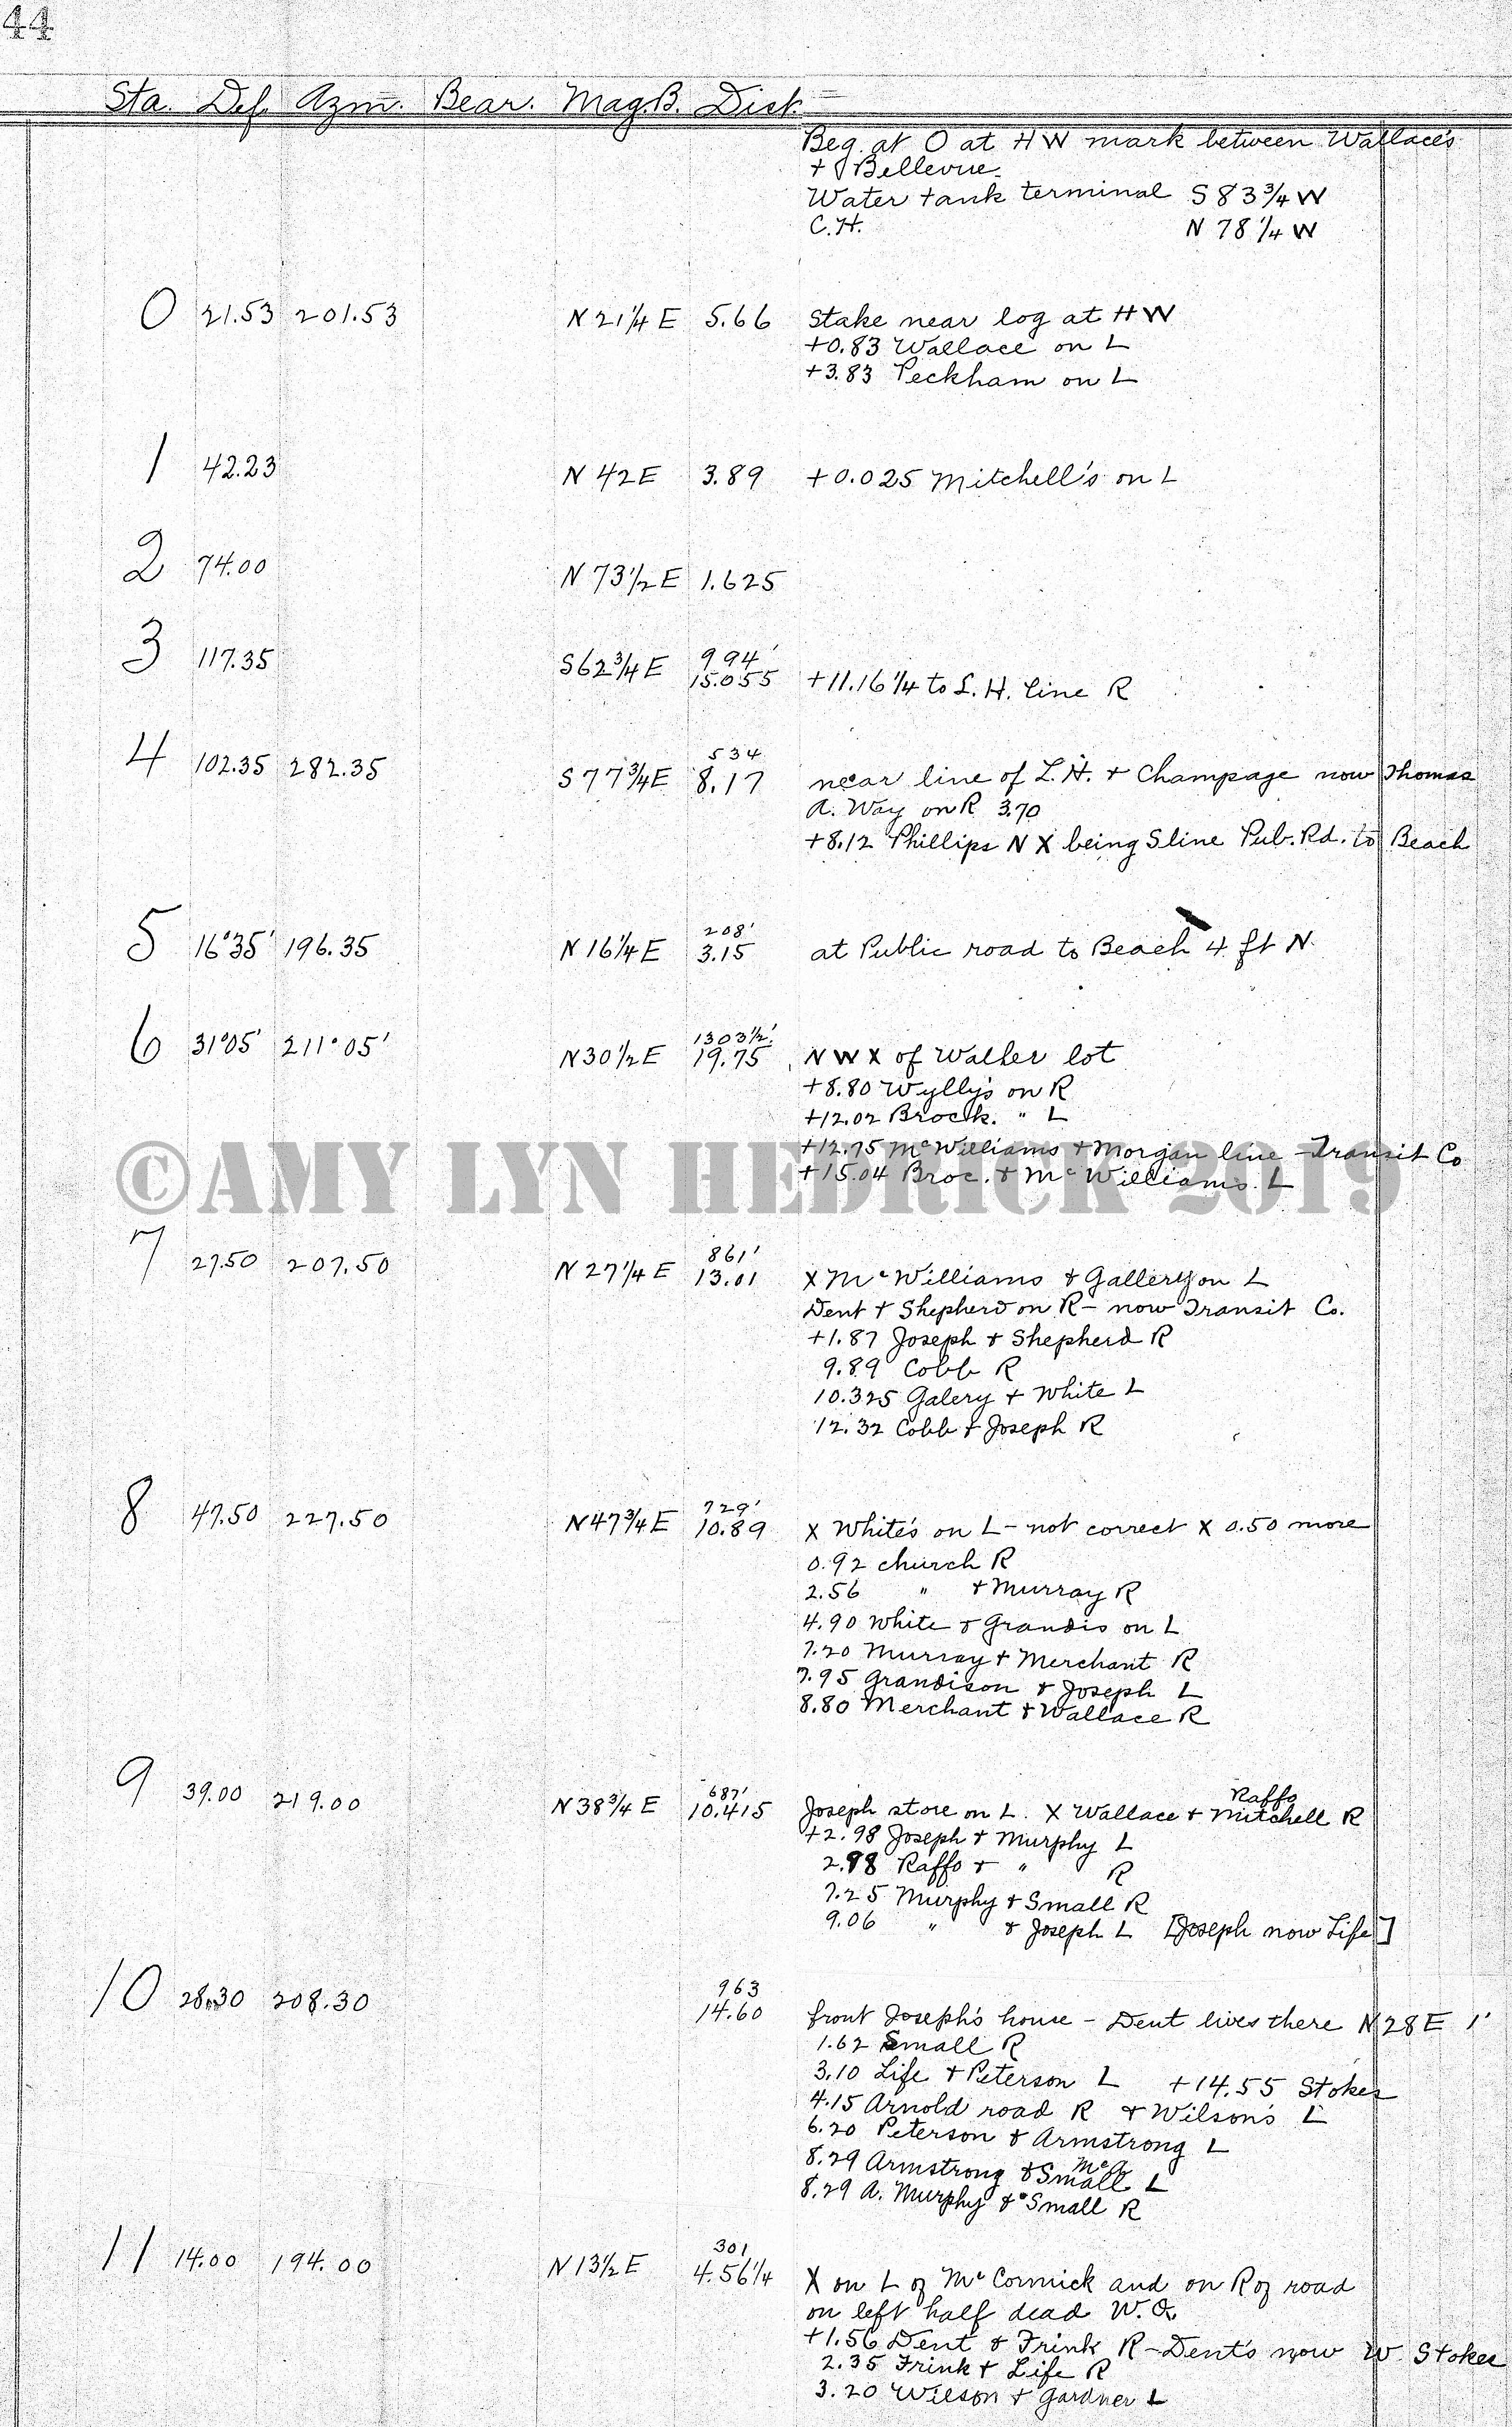 44
Sta. Def. Azm. Bear. Mag.B. Dist.
Beg. at O at HW mark between Wallace's
+ Bellevue.
Water tank terminal S 83 3/4 W
C.H. N 78 1/4 W
0 21.53 201.53 N 21 1/4 E 5.66 Stake near log at HW
+0.83 Wallace on L
+3.83 Peckham on L
1 42.23 N 42 E 3.89 +0.025 Mitchell's on L
2 74.00 N 73 1/2 E 1.625
3 117.35 S 62 3/4 E 994'
15.055 +11.16 1/4 to L.H. line R
4 102.35 282.35 S 77 3/4 E 534
8.17 near line of L.H. + Champage now Thomas
A. Way on R 3.70
+8.12 Phillips N X being S line Pub. Rd. to Beach
5 16°35' 196.35 N 16 1/4 E 208'
3.15 at Public road to Beach 4 ft N.
6 31°05' 211°05' N 30 1/2 E 1303 1/2'
19.75 NWX of Walker lot
+8.80 Wylly's on R
+12.02 Brock. " L
+12.75 McWilliams + Morgan line - Transit Co
+15.04 Broc. + McWilliams. L
©AMY LYN HEDRICK 2019
7 27.50 207.50 N 27 1/4 E 861'
13.01 X McWilliams + Gallery on L
Dent + Shepherd on R - now Transit Co.
+1.87 Joseph + Shepherd R
9.89 Cobb R
10.325 Galery + White L
12.32 Cobb + Joseph R
8 47.50 227.50 N 47 3/4 E 729'
10.89 X White's on L - not correct X 0.50 more
0.92 church R
2.56 " + Murray R
4.90 White + Grandis on L
7.20 Murray + Merchant R
7.95 Grandison + Joseph L
8.80 Merchant + Wallace R
9 39.00 219.00 N 38 3/4 E 687'
Raffo
10.415 Joseph store on L. X Wallace + Mitchell R
+2.98 Joseph + Murphy L
2.98 Raffo + " R
7.25 Murphy + Small R
9.06 " + Joseph L [Joseph now Life]
10 28.30 208.30 963
14.60 front Joseph's house - Dent lives there N 28 E 1'
1.62 Small R
3.10 Life + Peterson L +14.55 Stokes
4.15 Arnold road R + Wilson's L
6.20 Peterson + Armstrong L
8.29 Armstrong + Small L
8.29 A. Murphy + Small R
11 14.00 194.00 N 13 1/2 E 301
4.56 1/4 X on L of McCormick and on R of road
on left half dead W.O.
+1.56 Dent + Frink R - Dent's now W. Stokes
2.35 Frink + Life R
3.20 Wilson + Gardner L